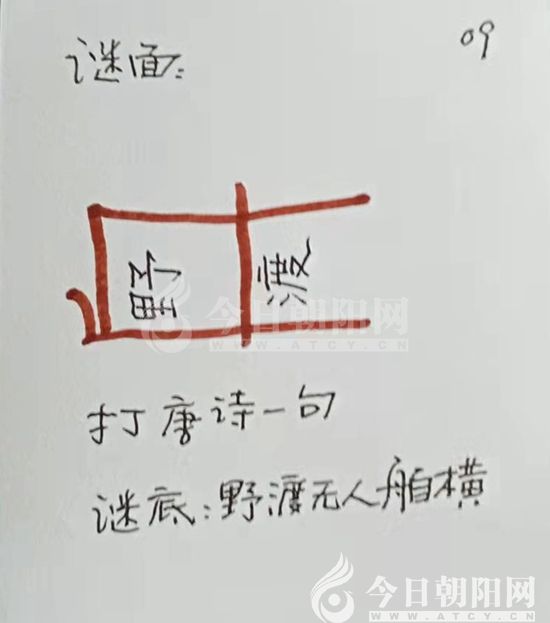 谜面:
09
野 渡
今日朝阳网
WWW.ATCY.CN
打唐诗一句
谜底:野渡无人舟自横
今日朝阳网
WWW.ATCY.CN